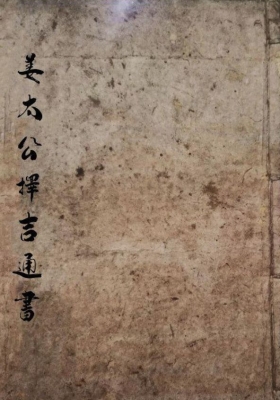 姜太公擇吉通書